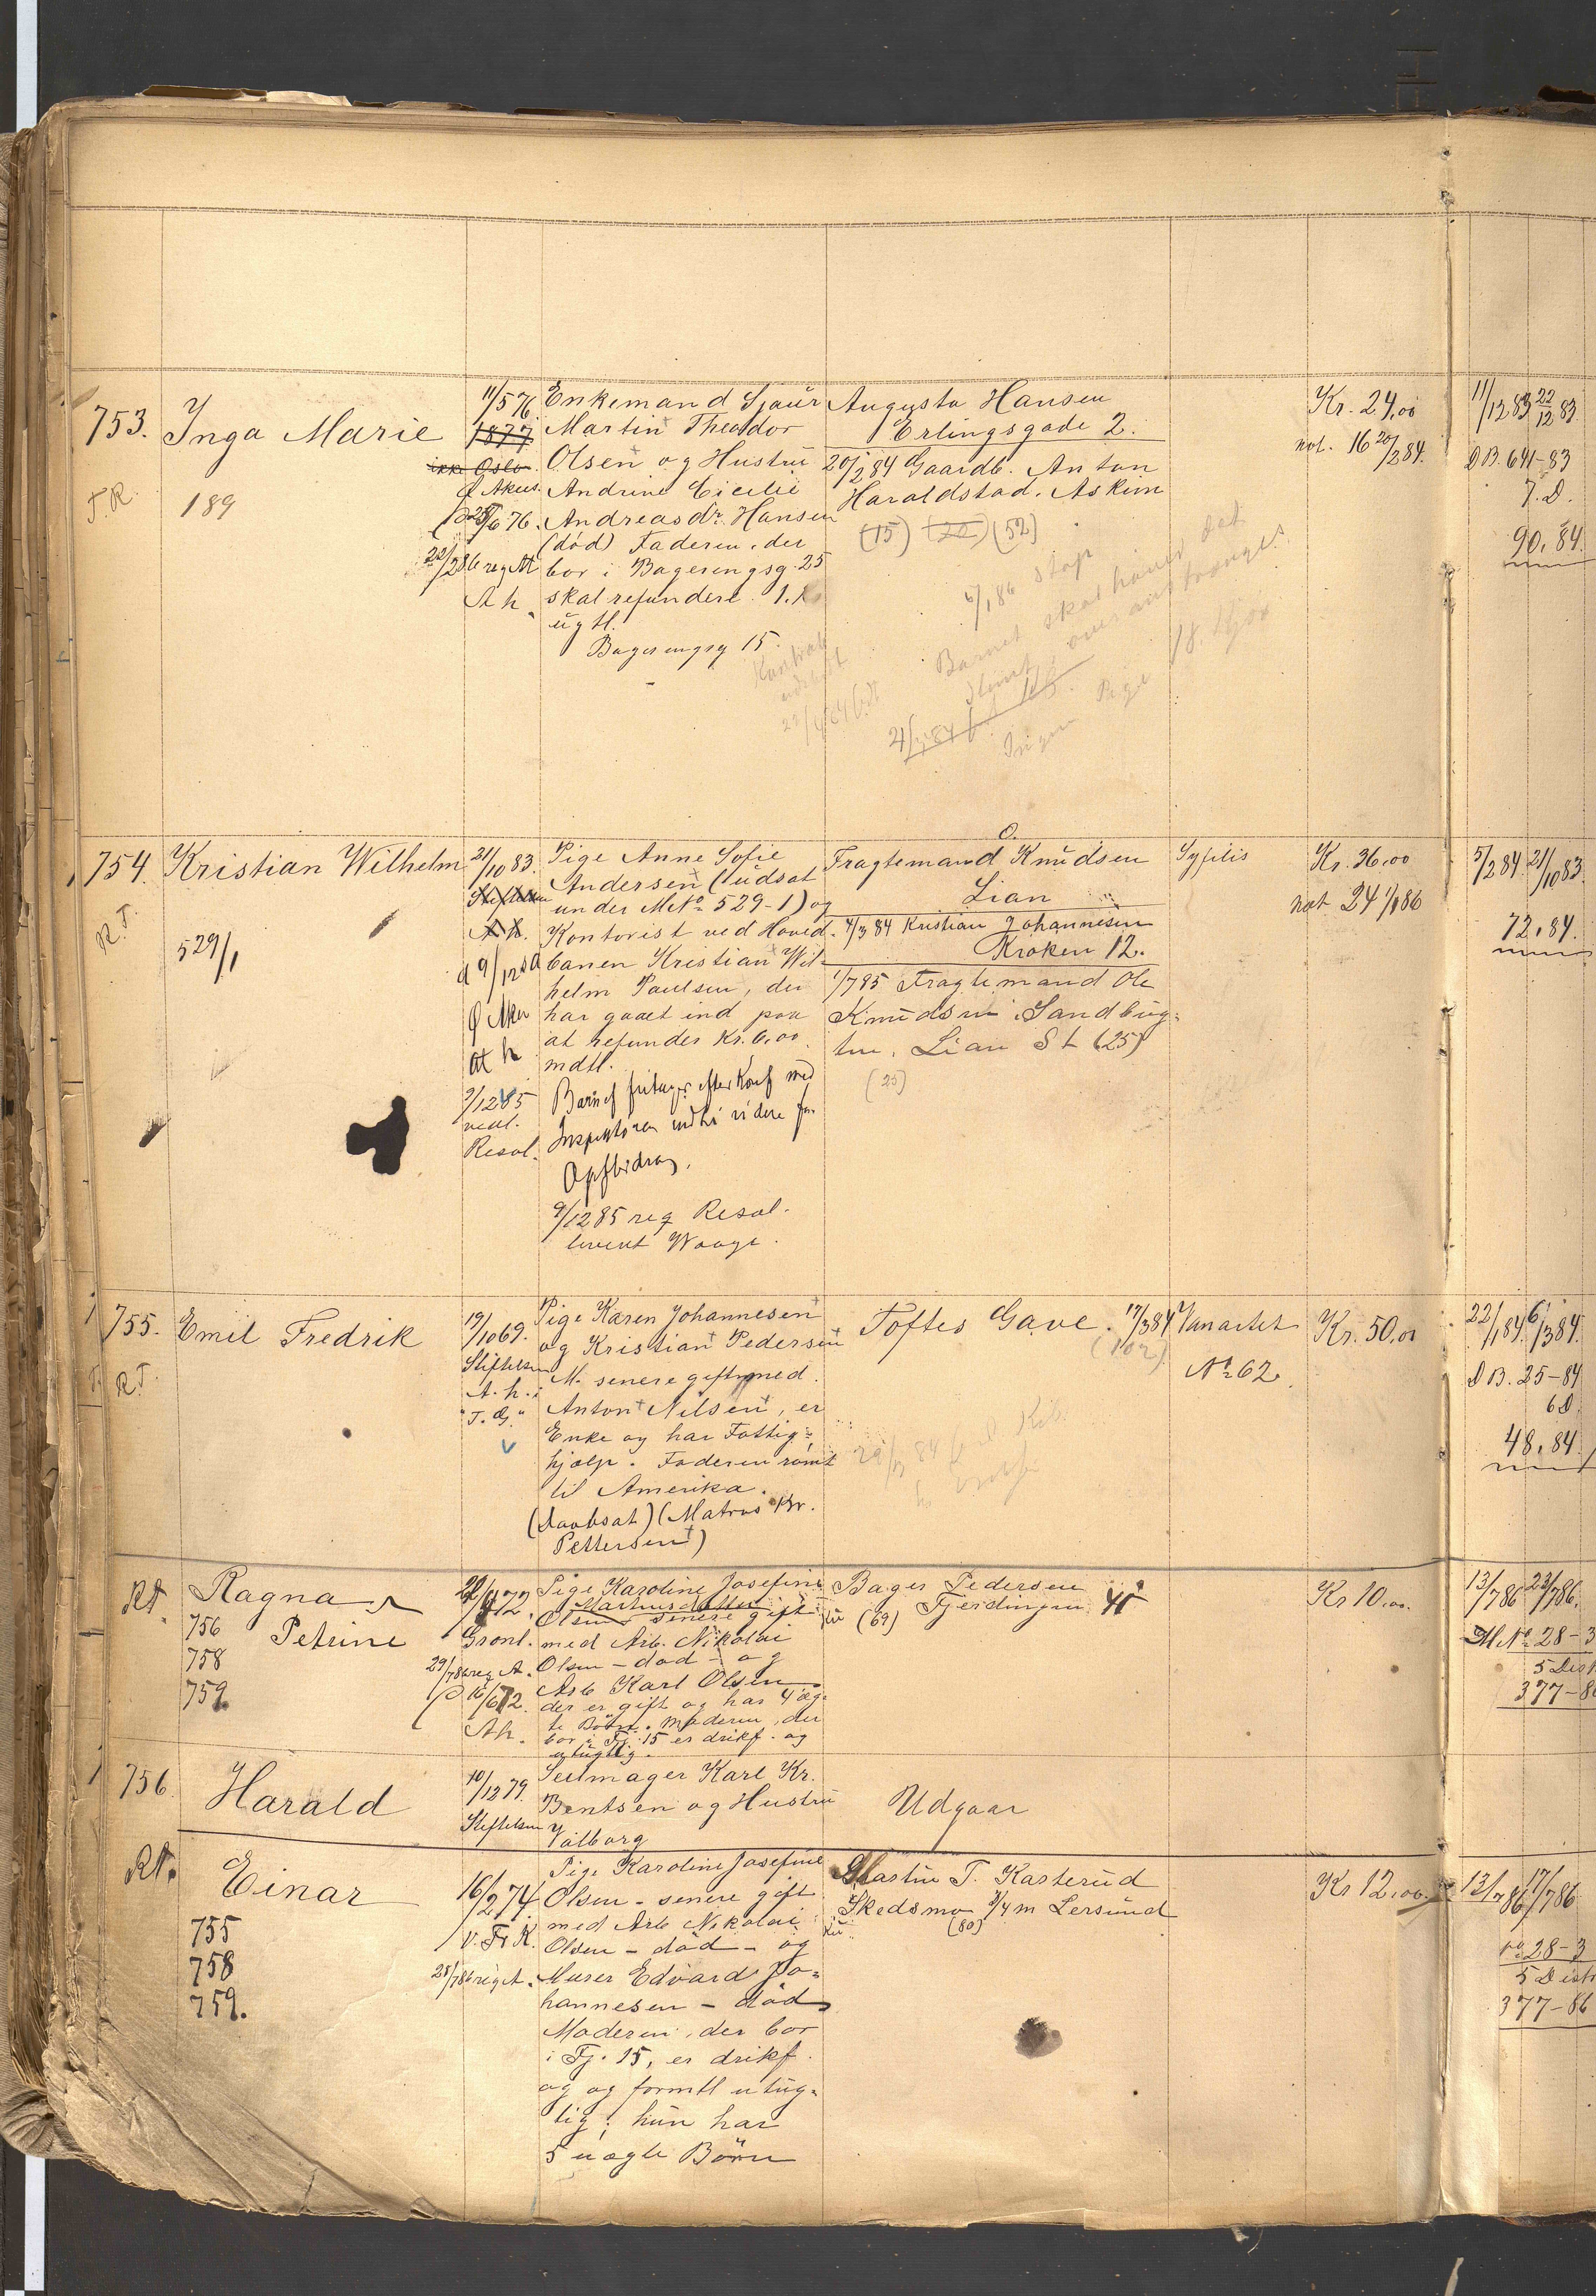 753.
Inga Marie
T. R.
189
11/5 76.
1877.
ikke Oslo.
G. Akers.
25/6 76.
22/2 86 reg At
A h.
Enkemand Sjauer
Martin Theodor
Olsen og Hustru
Andrine Cicelie
Andreasdr. Hansen
(död) Faderen, der
bor i Bagerengsg. 25
skal refundere 1. Kr
ugtl.
Bagerengsg 15.
Augusta Hansen
Erlingsgade 2.
20/2 84 Gaardb. Anton
Haraldstad. Askim
(15) (22) (52)
6/1 86 Stop
Barnet skal
Ingen Pige
Kr. 24,00
not. 16 20/2 84.
11/12 83 22/12 83.
D B. 641-83
7. D.
90, 84.
754.
Kristian Wilhelm
R. T.
529/1
21/10 83.
Stiftelsen
A. h.
At h
9/12 85
vedl.
Resol.
Pige Anne Sofie
Andersen (udsat
under M No 529-1) og
Kontorist ved Hoved-
banen Kristian Wil-
helm Paulsen, der
har gaaet ind paa
at refunder Kr. 6,00
mdtl.
Barnef fritages efter Konf med
Inspektören indtil videre for
Opfbidrag.
9/12 85 reg Resol.
levert Waage.
Fragtemand O. Knudsen
Lian
4/3 84 Kristian Johannesen
Kroken 12.
1/7 85 Fragtemand Ole
Knudsen Sandbug-
ten, Lian St (25)
(25)
Syfilis
Kr. 36,00
not 24 1/1 86
5/2 84. 21/10 83.
72, 84.
755.
Emil Fredrik
R. T.
19/10 69.
Stiftelsen
A. h.
"T. G."
Pige Karen Johannesen
og Kristian Pedersen
M. senere gift med
Anton Nilsen, er
Enke og har Fattig-
hjælp. Faderen römt
til Amerika.
(daabsat) (Matros Kr.
Pettersen)
Toftes Gave. 17/3 84
(102)
Vanartet
No 62.
Kr. 50,00
22/1 84. 6/3 84.
D B. 25-84
6 D.
48, 84.
Rt.
Ragna
Petrine
756
758
759
72.
Grönl.
29/7 86 reg A.
16/6 72.
Ah.
Pige Karoline Josefine
Martinusdatter
Olsen senere gift
med Arb. Nikolai
Olsen - död - og
Arb Karl Olsen
der er gift og har 4 æg-
te Börn. Moderen, der
bor i Fj. 15 er drikf. og
utugtig.
Bager Pedersen
(69) Fjerdingen 41
Kr 10,00.
13/7 86 23/7 86.
M. No 28-3
5 Dist
377-86
756.
Harald
10/12 79.
Stiftelsen
Seilmager Karl Kr.
Bentsen og Hustru
Valborg
Udgaar
Rt.
Einar
755
758
759.
16/2 74.
V. Fr K.
28/7 86 reg A.
Pige Karoline Josefine
Olsen - senere gift
med Arb Nikolai
Olsen - död - og
Murer Edvard Jo-
hannesen - död
Moderen, der bor
i Fj. 15, er drikf.
og og formtl utug-
tig; hun har
5 uægte Börn
Martin T. Karterud
Skedsmo Lersund
(80)
Kr 12,00.
13/7 86 17/7 86
No 28-3
5 Distr
377-86